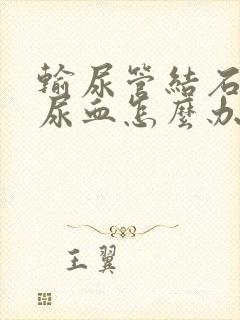 輸尿管結石
尿血怎麼办
王翼